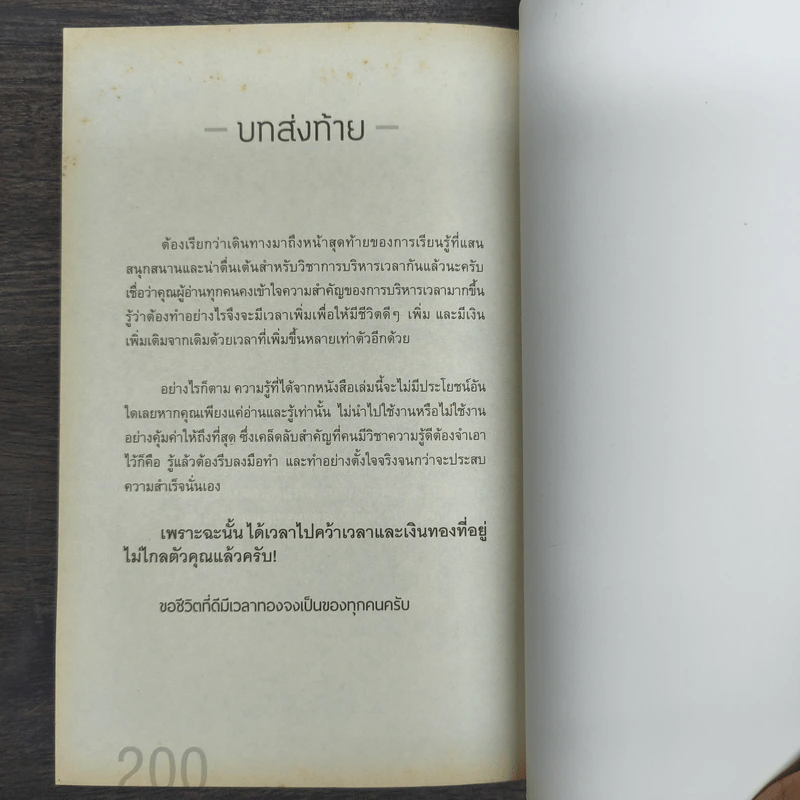 – บทส่งท้าย –
ต้องเรียกว่าเดินทางมาถึงหน้าสุดท้ายของการเรียนรู้ที่แสน
สนุกสนานและน่าตื่นเต้นสำหรับวิชาการบริหารเวลากันแล้วนะครับ
เชื่อว่าคุณผู้อ่านทุกคนคงเข้าใจความสำคัญของการบริหารเวลามากขึ้น
รู้ว่าต้องทำอย่างไรจึงจะมีเวลาเพิ่มเพื่อให้มีชีวิตดีๆ เพิ่ม และมีเงิน
เพิ่มเติมจากเดิมด้วยเวลาที่เพิ่มขึ้นหลายเท่าตัวอีกด้วย
อย่างไรก็ตาม ความรู้ที่ได้จากหนังสือเล่มนี้จะไม่มีประโยชน์อัน
ใดเลยหากคุณเพียงแค่อ่านและรู้เท่านั้น ไม่นำไปใช้งานหรือไม่ใช้งาน
อย่างคุ้มค่าให้ถึงที่สุด ซึ่งเคล็ดลับสำคัญที่คนมีวิชาความรู้ดีต้องจำเอา
ไว้ก็คือ รู้แล้วต้องรีบลงมือทำ และทำอย่างตั้งใจจริงจนกว่าจะประสบ
ความสำเร็จนั่นเอง
เพราะฉะนั้น ได้เวลาไปคว้าเวลาและเงินทองที่อยู่
ไม่ไกลตัวคุณแล้วครับ!
ขอชีวิตที่ดีมีเวลาทองจงเป็นของทุกคนครับ
200